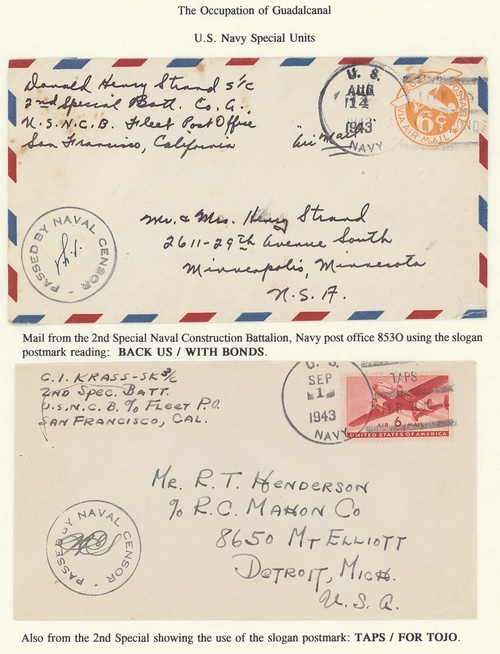 The Occupation of Guadalcanal
U.S. Navy Special Units
Donald Henry Strand S/c
2nd Special Batt. Co. A.
U.S.N.C.B. Fleet Post Office
San Francisco, California
Air Mail
U. S.
AUG
14
1943
NAVY
U.S. POSTAGE
6¢
VIA AIR MAIL
Mr. & Mrs. Henry Strand
2611-29th Avenue South
Minneapolis, Minnesota
U.S.A.
PASSED BY NAVAL CENSOR
Mail from the 2nd Special Naval Construction Battalion, Navy post office 853O using the slogan
postmark reading: BACK US / WITH BONDS.
C. I. KRASS-SK3/c
2ND SPEC. BATT.
U.S.N.C.B. % FLEET P.O.
SAN FRANCISCO, CAL.
U. S.
SEP
1
1943
NAVY
TAPS
AIR 6 MAIL
UNITED STATES OF AMERICA
MR. R. T. HENDERSON
% R.C. MAHON CO
8650 MT ELLIOTT
DETROIT, MICH.
U. S. A.
PASSED BY NAVAL CENSOR
Also from the 2nd Special showing the use of the slogan postmark: TAPS / FOR TOJO.